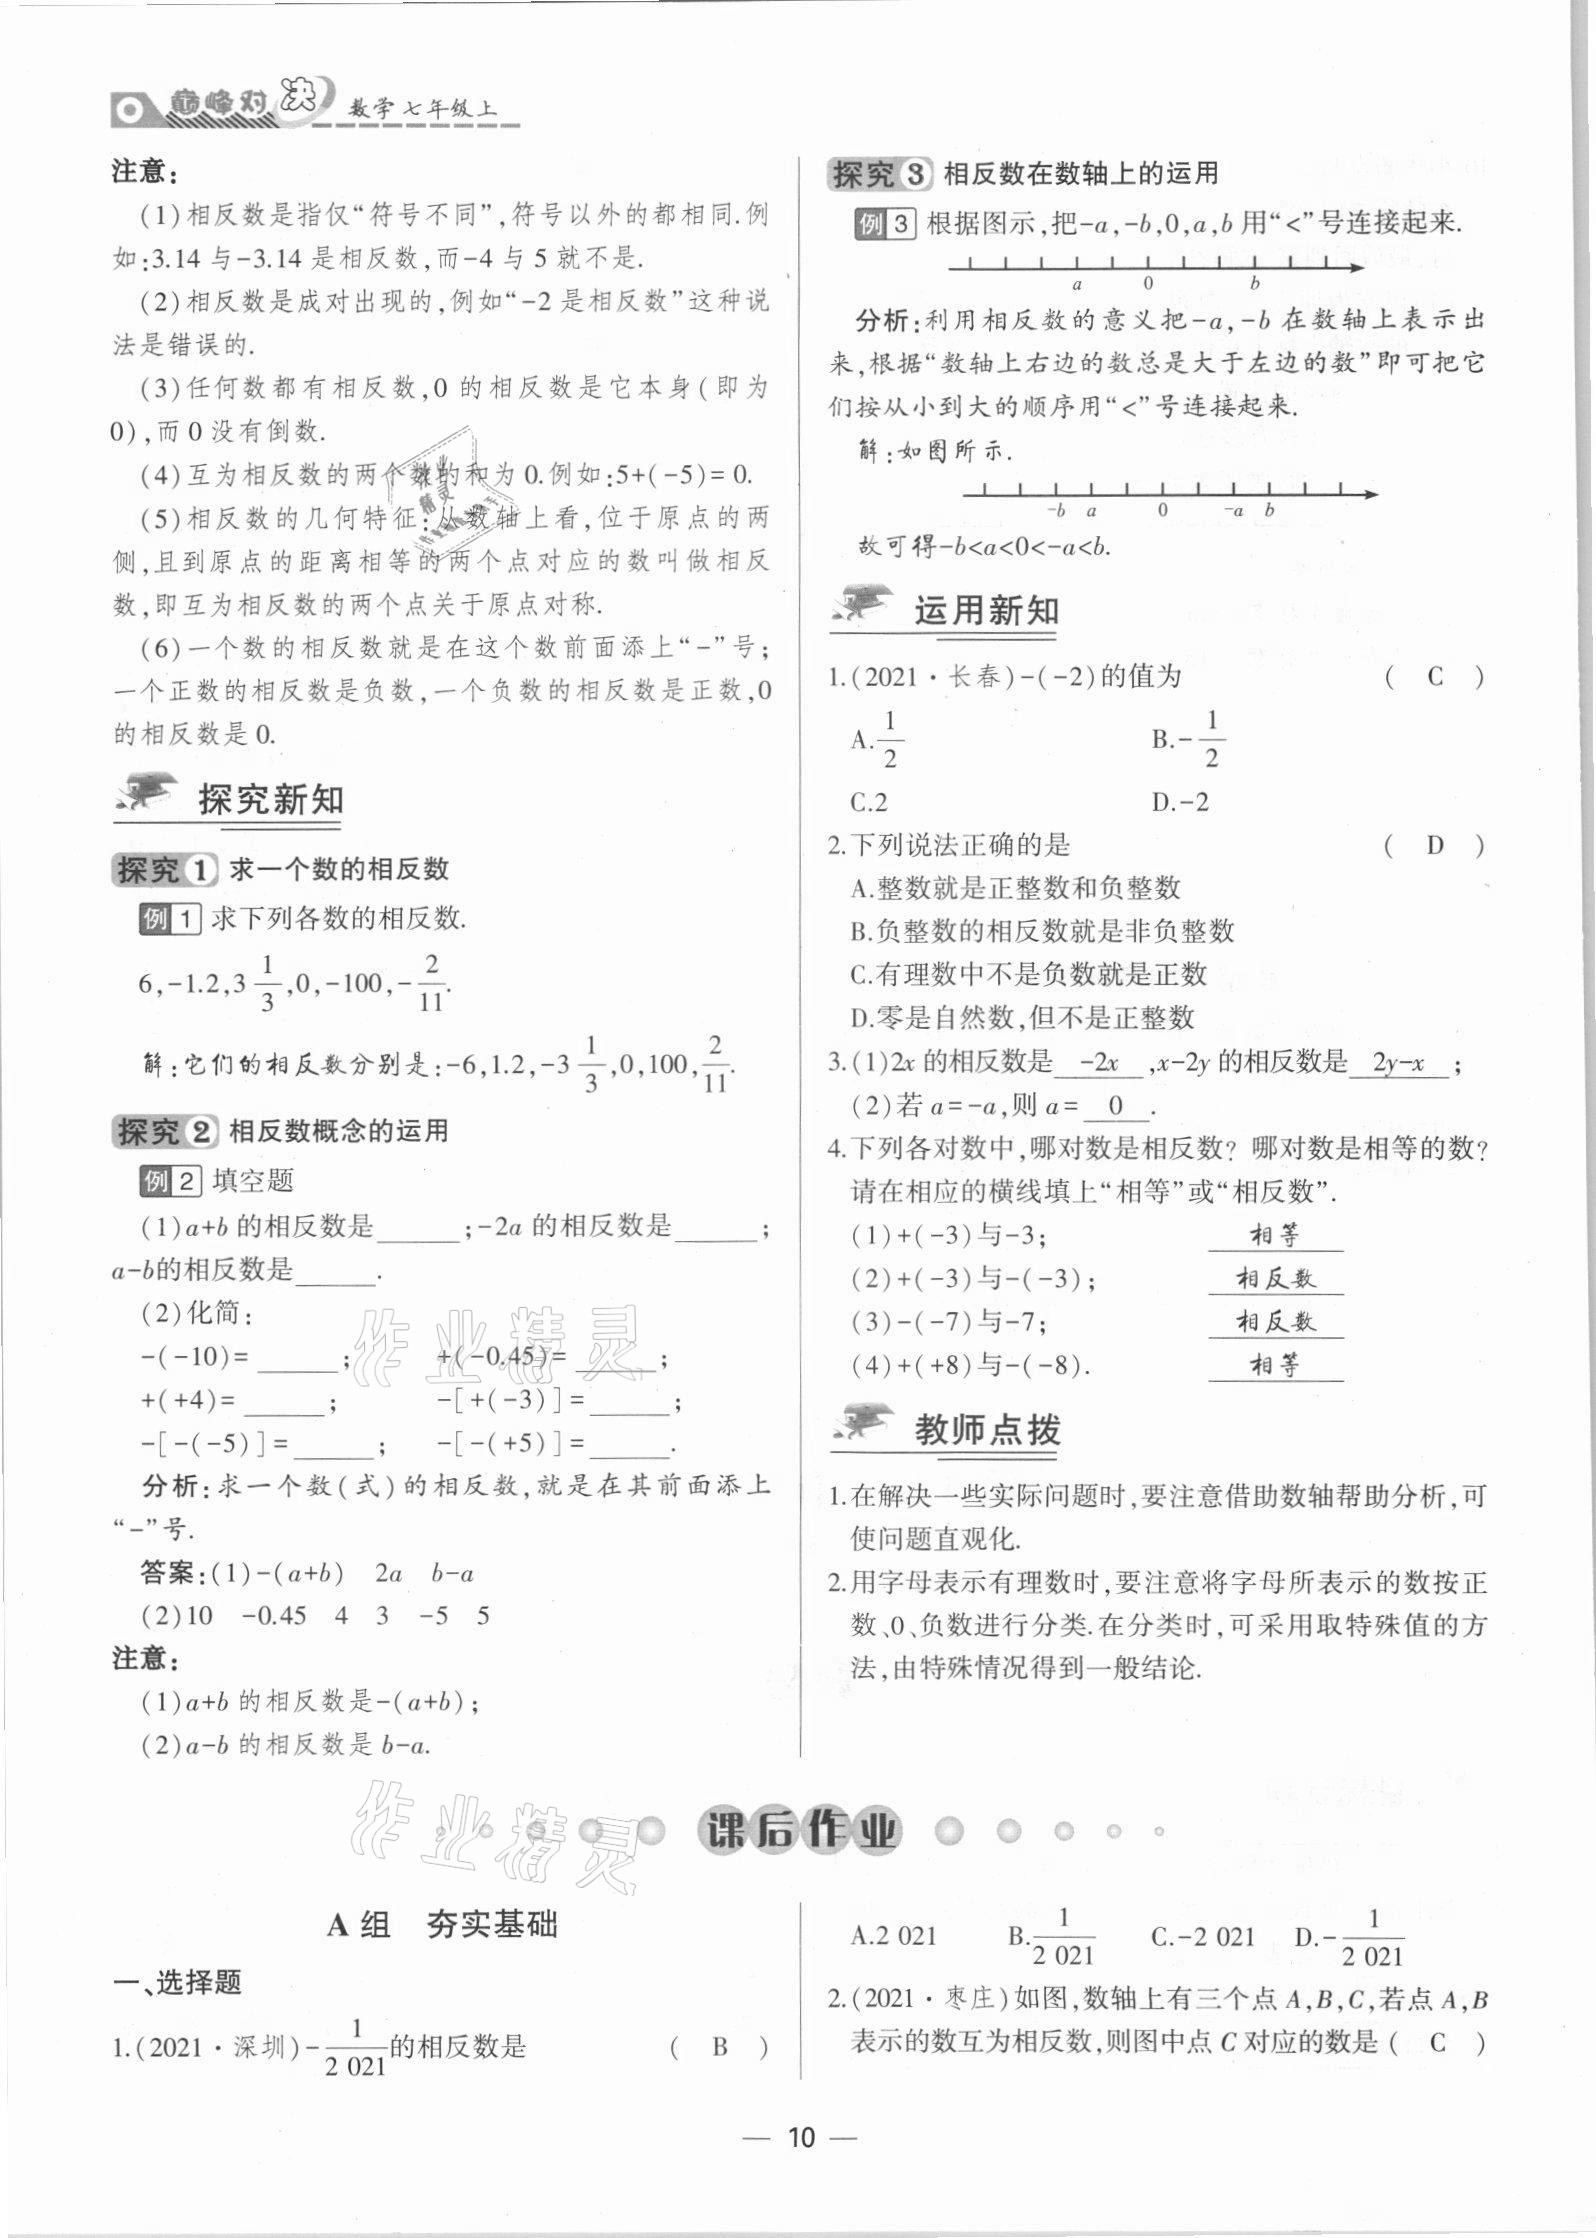 巅峰对决 数学七年级上
注意:
(1)相反数是指仅“符号不同”,符号以外的都相同.例
如:3.14与-3.14是相反数,而-4与5就不是.
(2)相反数是成对出现的,例如“-2是相反数”这种说
法是错误的.
(3)任何数都有相反数,0的相反数是它本身(即为
0),而0没有倒数.
(4)互为相反数的两个数的和为0.例如:5+(-5)=0.
(5)相反数的几何特征:从数轴上看,位于原点的两
侧,且到原点的距离相等的两个点对应的数叫做相反
数,即互为相反数的两个点关于原点对称.
(6)一个数的相反数就是在这个数前面添上“-”号;
一个正数的相反数是负数,一个负数的相反数是正数,0
的相反数是0.
探究新知
探究1 求一个数的相反数
例1 求下列各数的相反数.
6,-1.2,3 1/3,0,-100,-2/11.
解:它们的相反数分别是:-6,1.2,-3 1/3,0,100,2/11.
探究2 相反数概念的运用
例2 填空题
(1)a+b的相反数是______;-2a的相反数是______;
a-b的相反数是______.
(2)化简:
-(-10)=______; +(-0.45)=______;
+(+4)=______; -[+(-3)]=______;
-[-(-5)]=______; -[-(+5)]=______.
分析:求一个数(式)的相反数,就是在其前面添上
“-”号.
答案:(1)-(a+b) 2a b-a
(2)10 -0.45 4 3 -5 5
注意:
(1)a+b的相反数是-(a+b);
(2)a-b的相反数是b-a.
探究3 相反数在数轴上的运用
例3 根据图示,把-a,-b,0,a,b用“<”号连接起来.
a 0 b
分析:利用相反数的意义把-a,-b在数轴上表示出
来,根据“数轴上右边的数总是大于左边的数”即可把它
们按从小到大的顺序用“<”号连接起来.
解:如图所示.
-b a 0 -a b
故可得-b<a<0<-a<b.
运用新知
1.(2021·长春)-(-2)的值为 ( C )
A.1/2 B.-1/2
C.2 D.-2
2.下列说法正确的是 ( D )
A.整数就是正整数和负整数
B.负整数的相反数就是非负整数
C.有理数中不是负数就是正数
D.零是自然数,但不是正整数
3.(1)2x的相反数是 -2x ,x-2y的相反数是 2y-x ;
(2)若a=-a,则a= 0 .
4.下列各对数中,哪对数是相反数? 哪对数是相等的数?
请在相应的横线填上“相等”或“相反数”.
(1)+(-3)与-3; 相等
(2)+(-3)与-(-3); 相反数
(3)-(-7)与-7; 相反数
(4)+(+8)与-(-8). 相等
教师点拨
1.在解决一些实际问题时,要注意借助数轴帮助分析,可
使问题直观化.
2.用字母表示有理数时,要注意将字母所表示的数按正
数、0、负数进行分类.在分类时,可采用取特殊值的方
法,由特殊情况得到一般结论.
作业精灵
作业精灵
课后作业
A组 夯实基础
一、选择题
1.(2021·深圳)-1/2 021的相反数是 ( B )
A.2 021 B.1/2 021 C.-2 021 D.-1/2 021
2.(2021·枣庄)如图,数轴上有三个点A,B,C,若点A,B
表示的数互为相反数,则图中点C对应的数是 ( C )
— 10 —